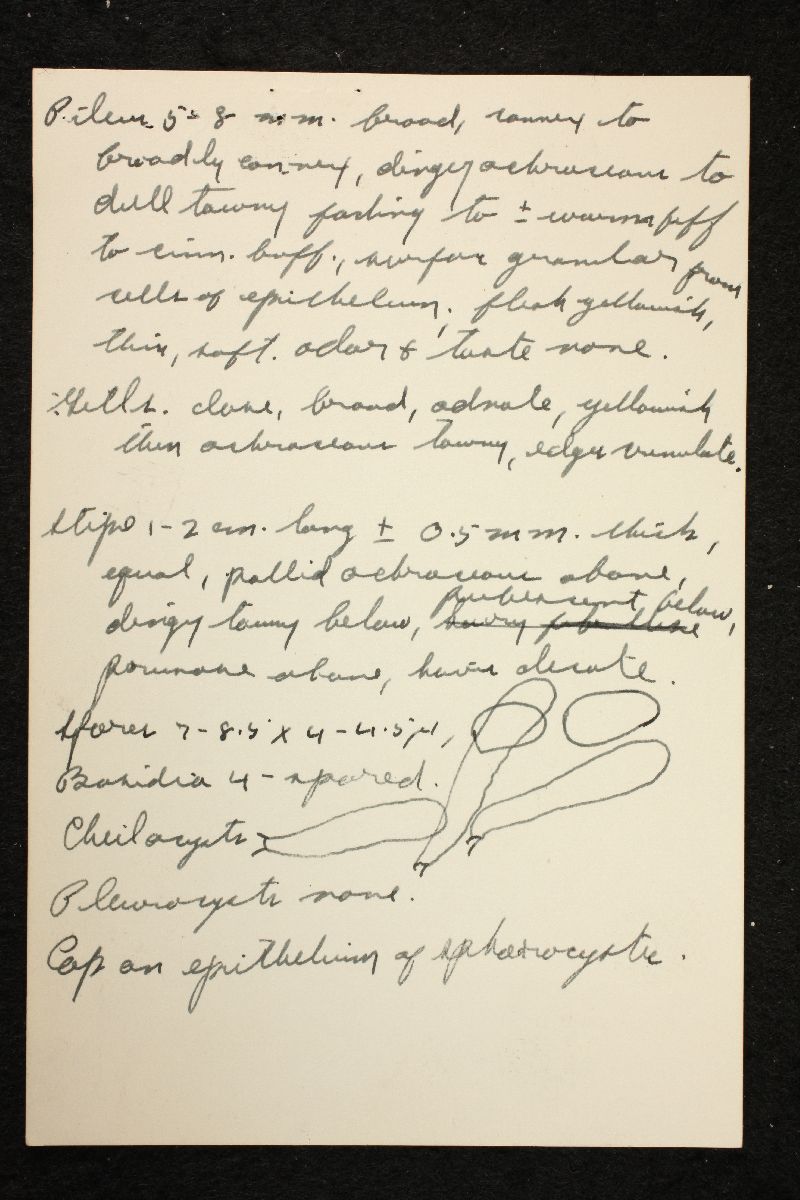 Pileus 5-8 m.m. broad, convex to
broadly convex, dingy ochraceous to
dull tawny fading to ± warm buff
to cinn. buff., surface granular from
cells of epithelium, flesh yellowish,
thin, soft. odor & taste none.
Gills. close, broad, adnate, yellowish
then ochraceous tawny, edges
Stipe 1-2 cm. long ± 0.5 mm. thick,
equal, pallid ochraceous above,
pubescent below,
dingy tawny below,
pruinose above,
Spores 7-8.5 x 4-4.5 µ,
Basidia 4-spored.
Cheilocysts
Pleurocysts none.
Cap an epithelium of sphaerocysts.